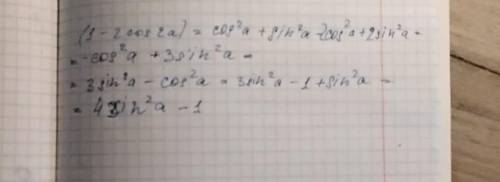 (1 - 2cos2a) = cos²a + sin²a - 2cos²a + 2sin²a =
= -cos²a + 3sin²a =
= 3sin²a - cos²a = 3sin²a - 1 + sin²a =
= 4sin²a - 1